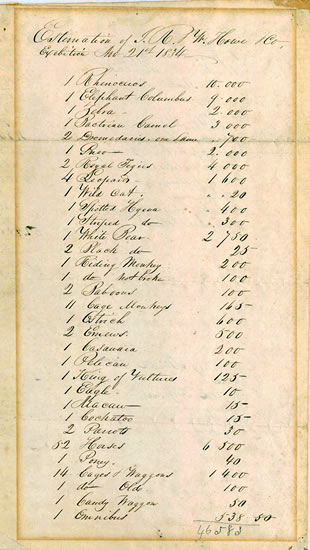 Estimation of J. R. & W. Howe & Co.
Exibition Nov 21st 1834
1 Rhenoceros 10.000
1 Elephant Columbus 9 000
1 Zebra 2.000
1 Bactrian Camel 3 000
2 Dromedaries one lame 700
1 2.000
2 Royal Tigers 4 000
4 Leopards 1 600
1 Wild Cat 20
1 Spotted Hyena 400
1 Striped do 300
1 White Bear 2 750
2 Black do 25
1 Riding Monkey 200
1 do not broke 100
2 Baboons 100
11 Cage Monkeys 165
1 Ostrich 600
2 Emews 500
1 Casawara 200
1 Pelican 100
1 King of Vultures 125
1 Eagle 10
1 Macaw 15
1 Cockatoo 15
2 Parrots 30
52 Horses 6 500
1 Pony 40
14 Cages & Waggons 1 400
1 do Old 100
1 Candy Waggon 50
1 Omnibus 538 50
46583